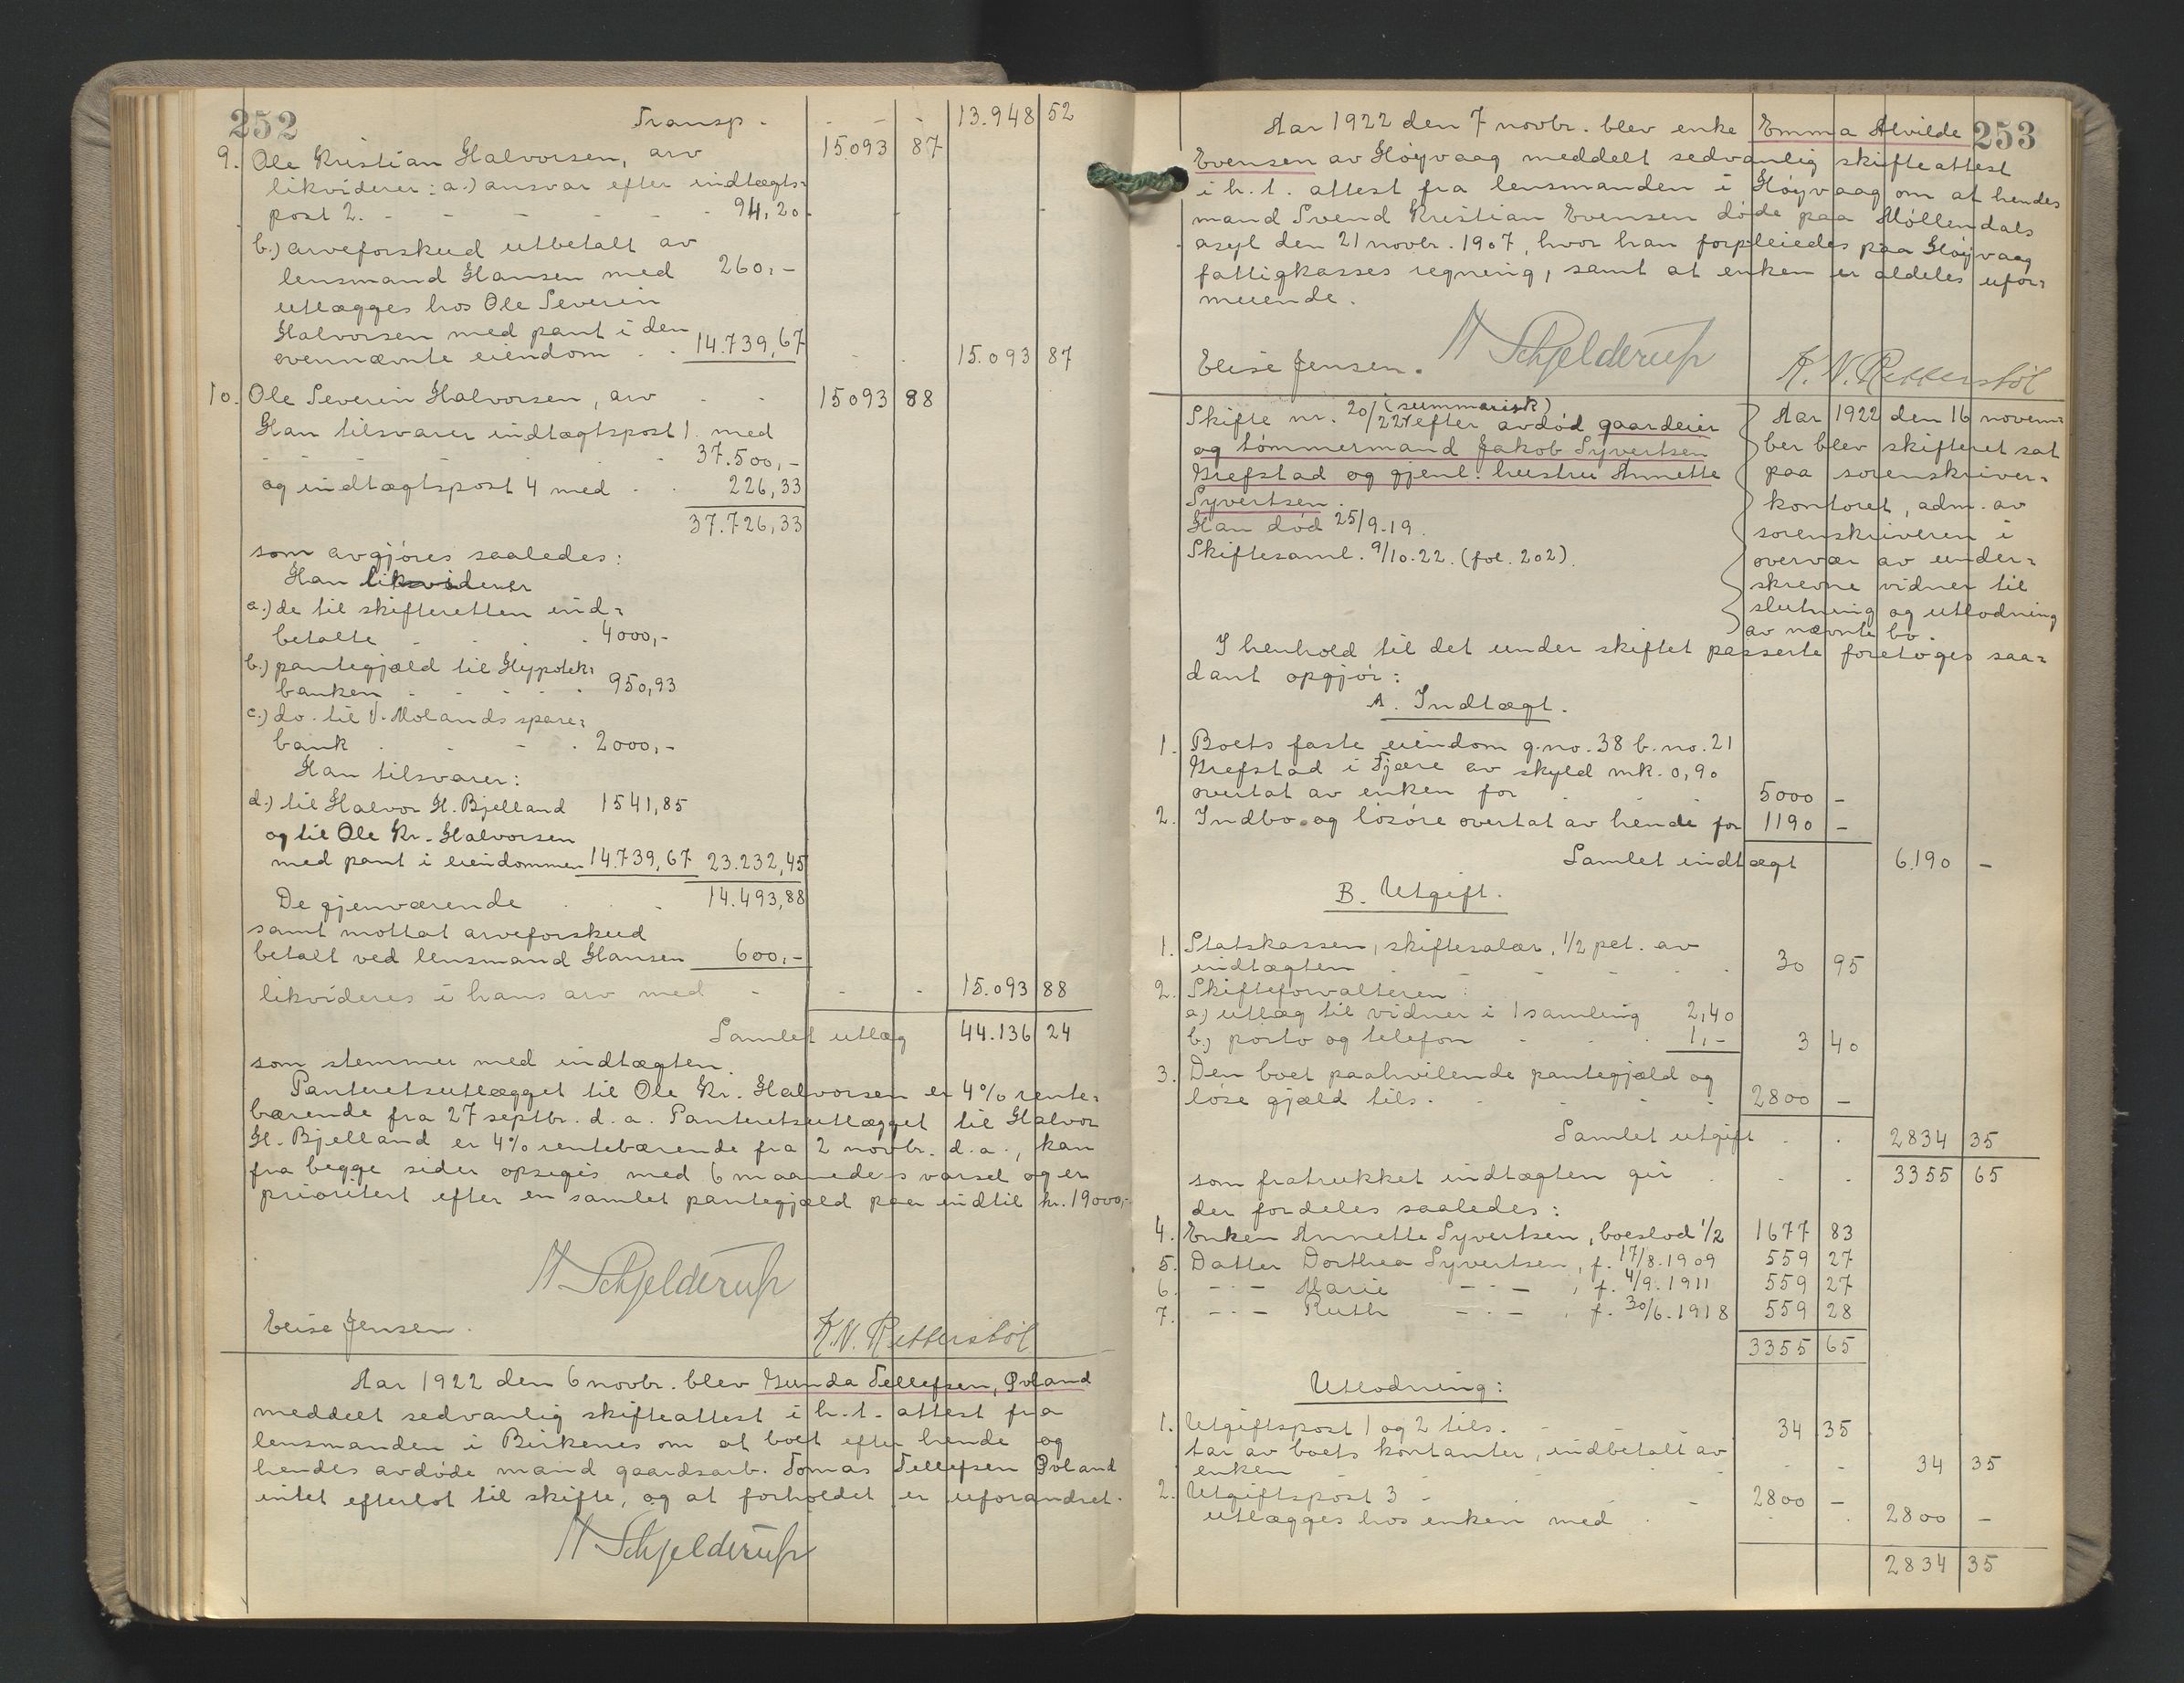 252
Transp. - - - 13.948 52
9. Ole Kristian Halvorsen, arv 15093 87
likviderer: a.) ansvar efter indtægts-
post 2. - - - - - 94,20
b.) arveforskud utbetalt av
lensmand Hansen med 260,-
utlægges hos Ole Severin
Halvorsen med pant i den
ovennævnte eiendom . . 14.739,67 - . 15.093 87
10. Ole Severin Halvorsen, arv - - 15093 88
Han tilsvarer indtægtspost 1. med
- - - - - - 37.500,-
og indtægtspost 4 med - . 226,33
37.726,33
som avgjøres saaledes:
Han likviderer
a.) de til skifteretten ind-
betalte - . . . 4000,-
b.) pantegjæld til Hypotek-
banken - - . . . 950,93
c.) do. til V. Molands spare-
bank . - - . 2000,-
Han tilsvarer:
d.) til Halvor H. Bjelland 1541,85
og til Ole Kr. Halvorsen
med pant i eiendommen 14.739,67 23.232,45
De gjenværende . - 14.493,88
samt mottat arveforskud
betalt ved lensmand Hansen 600,-
likvideres i hans arv med - - - 15.093 88
Samlet utlæg 44.136 24
som stemmer med indtægten.
Panteretsutlægget til Ole Kr. Halvorsen er 4% rente-
bærende fra 27 septbr. d.a. Panteretsutlægget til Halvor
H. Bjelland er 4% rentebærende fra 2 novbr. d.a., kan
fra begge sider opsiges med 6 maaneders varsel og er
prioritert efter en samlet pantegjæld paa indtil kr. 19000,-
H Schjelderup
Elise Jensen. K.N. Retterstöl
Aar 1922 den 6 novbr. blev Gunda Tellefsen, Øvland
meddelt sedvanlig skifteattest i h.t. attest fra
lensmanden i Birkenes om at boet efter hende og
hendes avdøde mand gaardsarb. Tomas Tellefsen Øvland
intet efterlot til skifte, og at forholdet er uforandret.
H Schjelderup
253
Aar 1922 den 7 novbr. blev enke Emma Alvilde
Evensen av Høyvaag meddelt sedvanlig skifteattest
i h.t. attest fra lensmanden i Høyvaag om at hendes
mand Svend Kristian Evensen døde paa Møllendals
asyl den 21 novbr. 1907, hvor han forpleiedes paa Høyvaag
fattigkasses regning, samt at enken er aldeles ufor-
muende.
H Schjelderup
Elise Jensen. K.N. Retterstöl
Skifte nr. 20/1922 (summarisk) efter avdød gaardeier
og tømmermand Jakob Syvertsen
Grefstad og gjenl. hustru Annette
Syvertsen.
Han død 25/9-19.
Skiftesaml. 9/10-22. (fol. 202).
Aar 1922 den 16 novem-
ber blev skifteret sat
paa sorenskriver-
kontoret, adm. av
sorenskriveren i
overvær av under-
skrevne vidner til
slutning og utlodning
av nævnte bo.
I henhold til det under skiftet passerte foretoges saa-
dant opgjør:
A. Indtægt.
1. Boets faste eiendom g.no. 38 b.no. 21
Grefstad i Fjære av skyld mk. 0,90
overtat av enken for . . . 5000 -
2. Indbo og løsøre overtat av hende for 1190 -
Samlet indtægt 6.190 -
B. Utgift.
1. Statskassen, skiftesalær, 1/2 pct. av
indtægten . - - - - . 30 95
2. Skifteforvalteren:
a) utlæg til vidner i 1 samling 2,40
b) porto og telefon - . . 1,- 3 40
3. Den boet paahvilende pantegjæld og
løse gjæld tils. - . - - 2800 -
Samlet utgift . . 2834 35
som fratrukket indtægten gir . . . 3355 65
der fordeles saaledes:
4. Enken Annette Syvertsen, boeslod 1/2 1677 83
5. Datter Dorthea Syvertsen, f. 17/8.1909 559 27
6. - - - Marie - - - , f. 4/9.1911 559 27
7. - - - Ruth - - - , f. 30/6.1918 559 28
3355 65
Utlodning:
1. Utgiftspost 1 og 2 tils. - . 34 35
tar av boets kontanter, indbetalt av
enken - - - - 34 35
2. Utgiftspost 3 - . . - 2800 -
utlægges hos enken med . . . 2800 -
2834 35